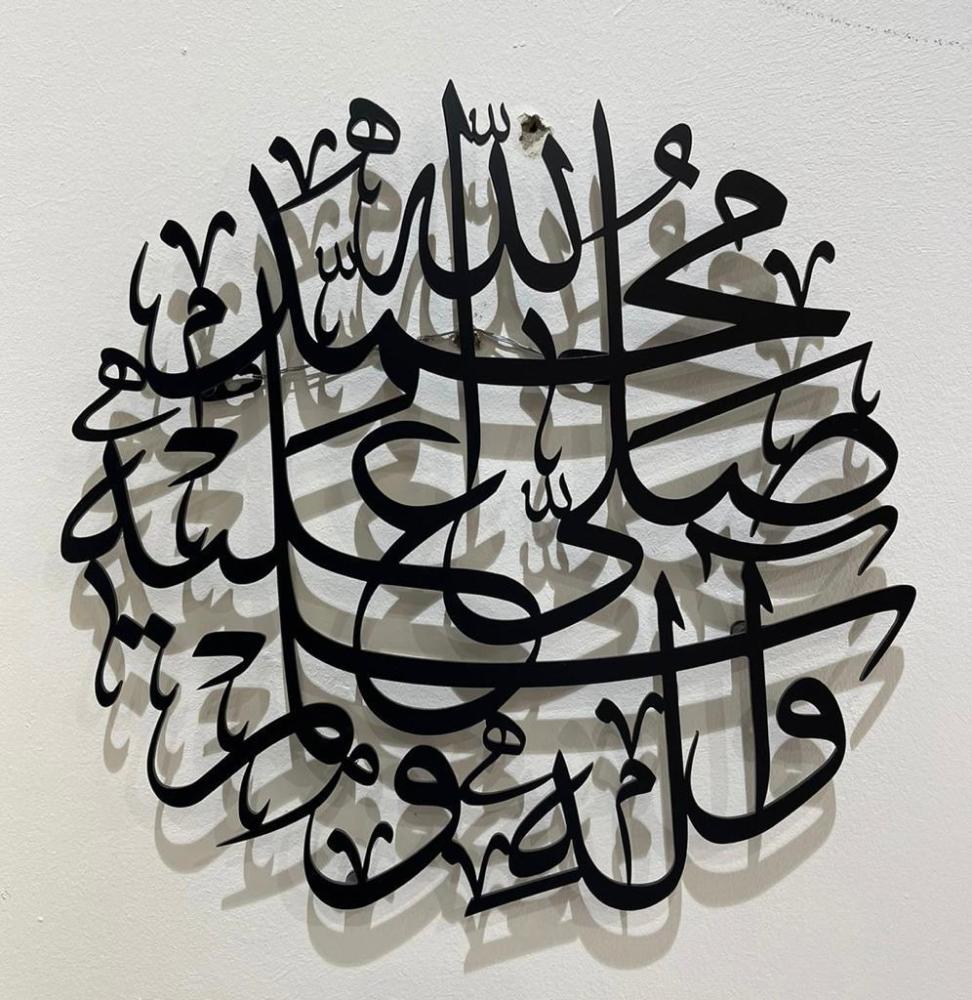 محمد
صلى الله عليه
واله وسلم